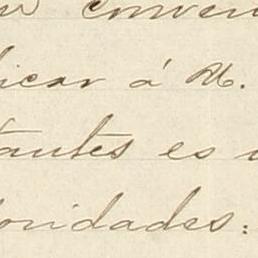 conven
icar á M.
tantes es
oridades: